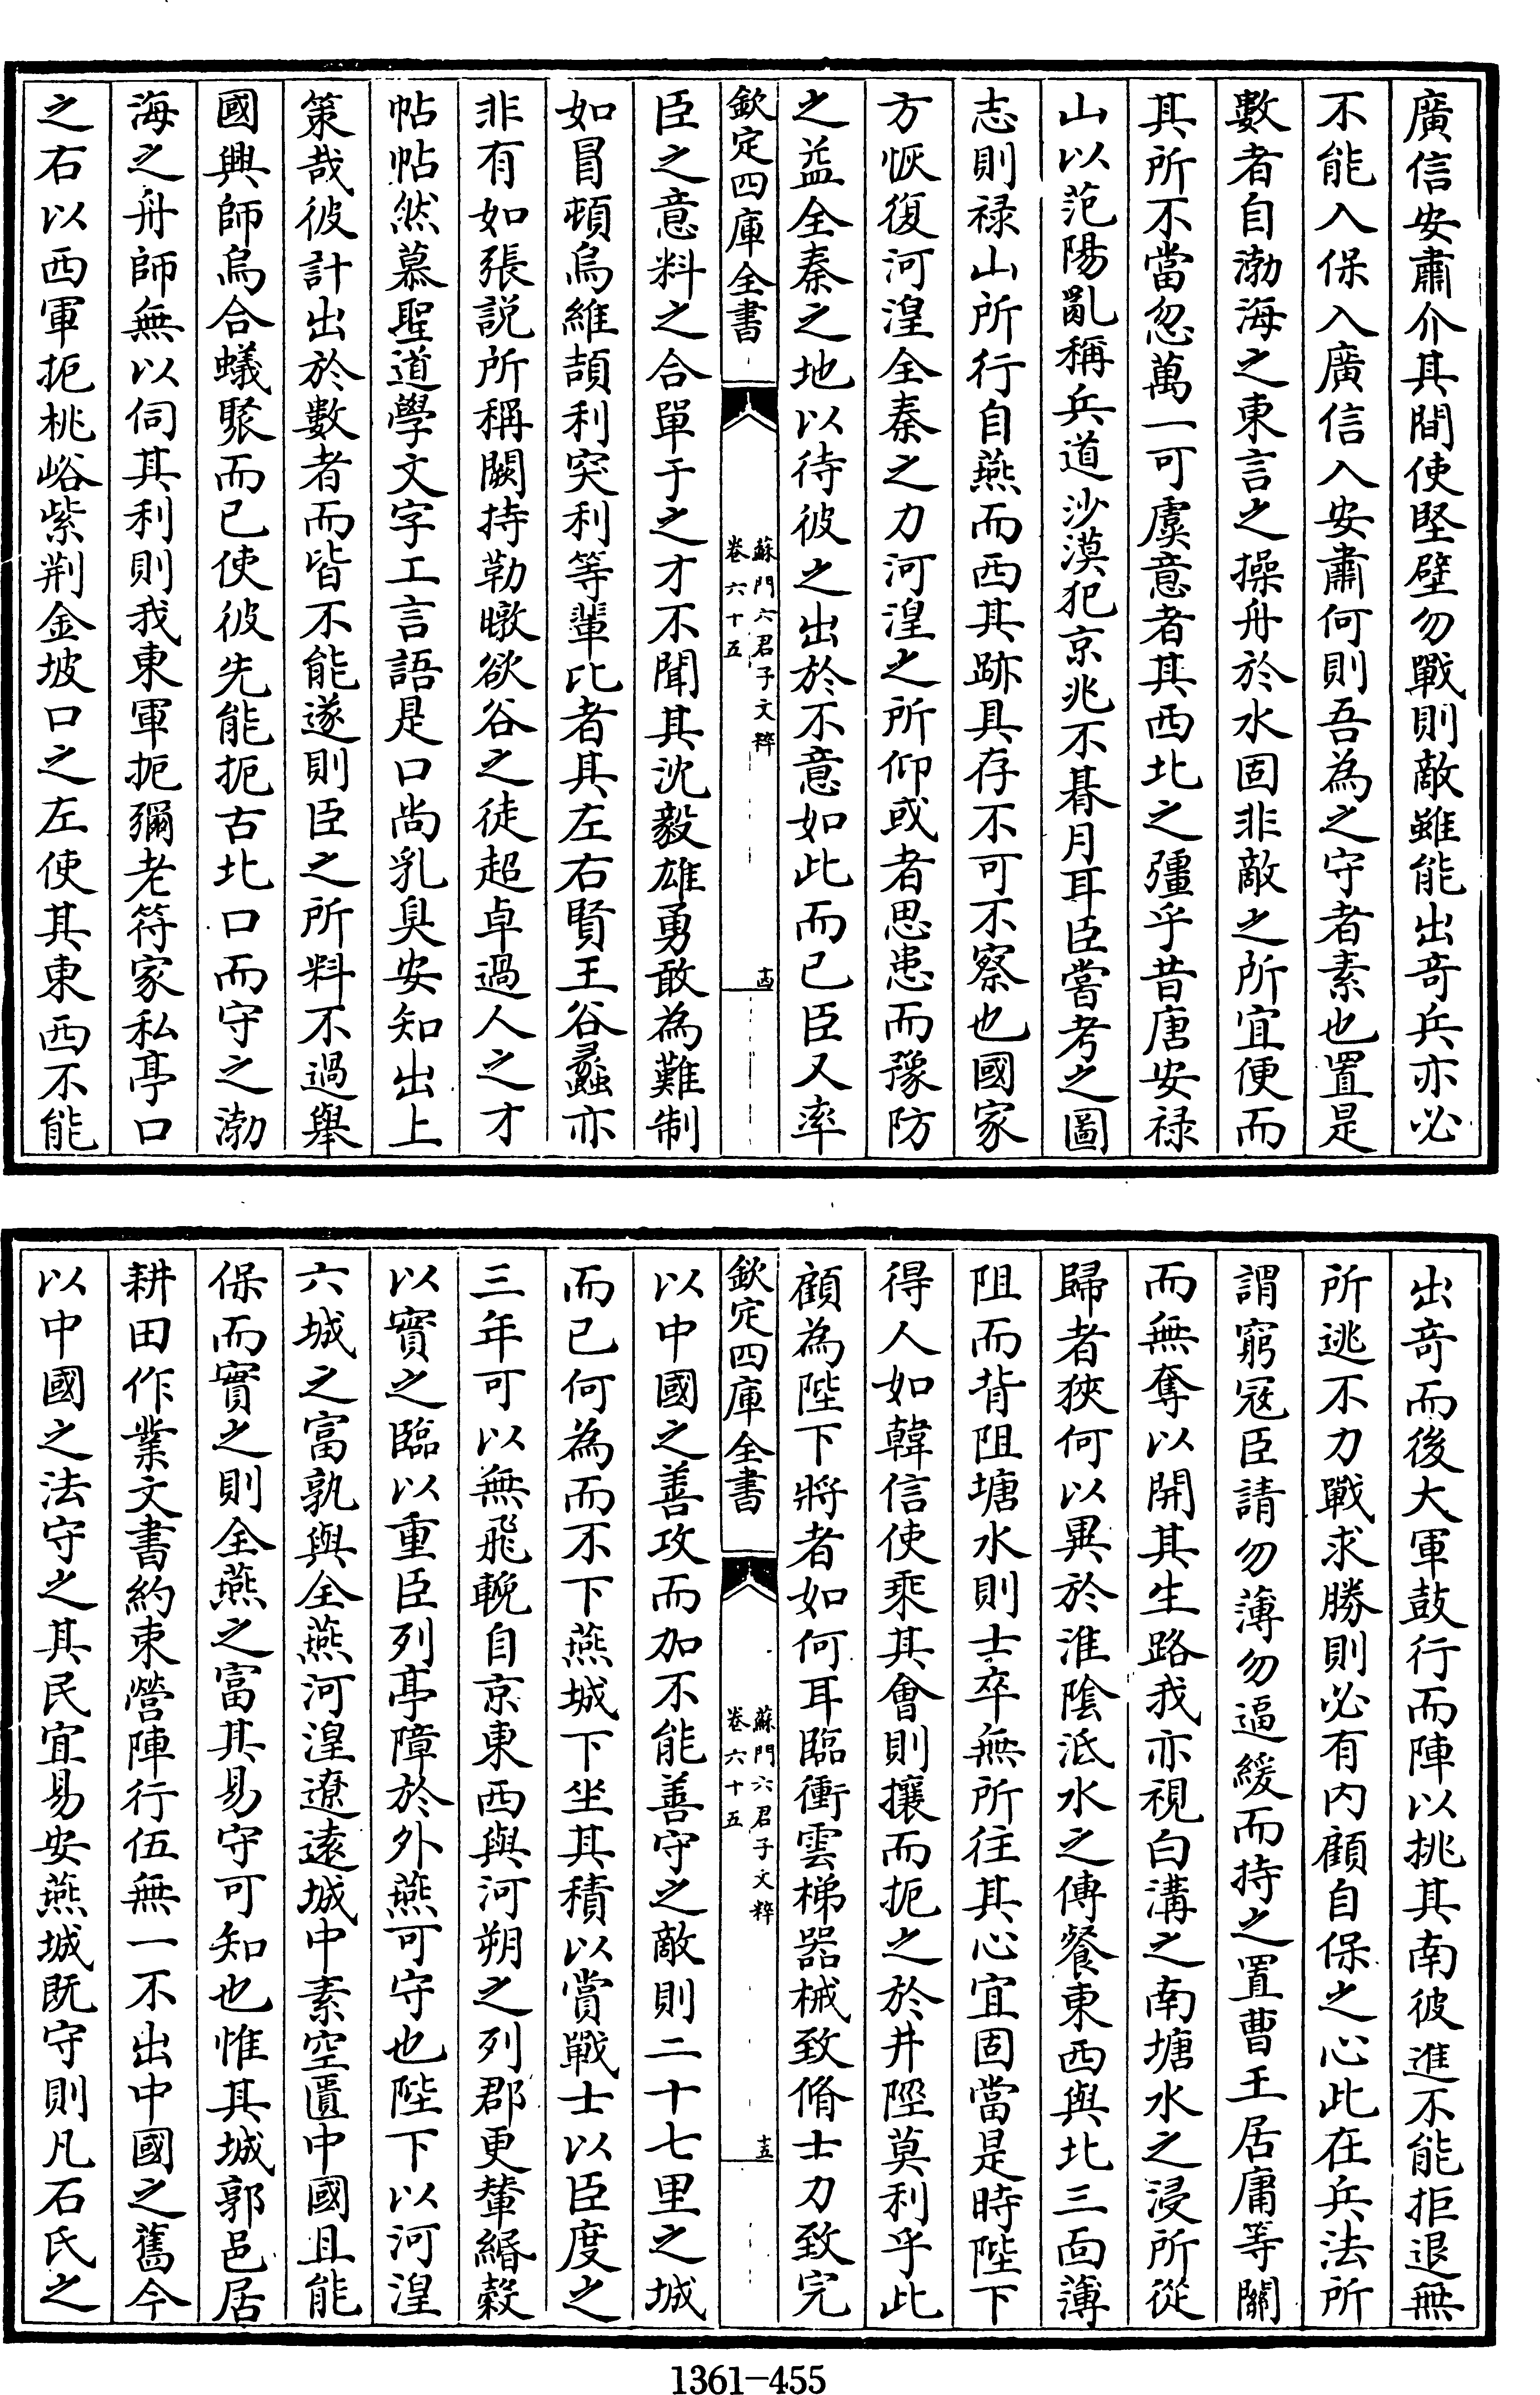 廣信安肅介其間使堅壁勿戰則敵雖能出奇兵亦必
不能入保入廣信入安肅何則吾為之守者素也置是
數者自渤海之東言之操舟於水固非敵之所宜便而
其所不當忽萬一可虞意者其西北之彊乎昔唐安禄
山以范陽亂稱兵道沙漠犯京兆不朞月耳臣嘗考之圖
志則禄山所行自燕而西其跡具存不可不察也國家
方恢復河湟全秦之力河湟之所仰或者思患而豫防
之益全秦之地以待彼之出於不意如此而已臣又率
欽定四庫全書
蘇門六君子文粹
卷六十五
十四
臣之意料之合單于之才不聞其沈毅雄勇敢為難制
如冒頓烏維頡利突利等輩比者其左右賢王谷蠡亦
非有如張説所稱闕持勒暾欲谷之徒超卓過人之才
帖帖然慕聖道學文字工言語是口尚乳臭安知出上
策哉彼計出於數者而皆不能遂則臣之所料不過舉
國興師烏合蟻聚而已使彼先能扼古北口而守之渤
海之舟師無以伺其利則我東軍扼彌老符家私亭口
之右以西軍扼桃峪紫荆金坡口之左使其東西不能
出奇而後大軍鼓行而陣以挑其南彼進不能拒退無
所逃不力戰求勝則必有内顧自保之心此在兵法所
謂窮冦臣請勿薄勿逼緩而持之置曹王居庸等關
而無奪以開其生路我亦視白溝之南塘水之浸所從
歸者狹何以異於淮陰泜水之傳餐東西與北三面薄
阻而背阻塘水則士卒無所往其心宜固當是時陛下
得人如韓信使乘其會則攘而扼之於井陘莫利乎此
顧為陛下將者如何耳臨衝雲梯器械致脩士力致完
欽定四庫全書
蘇門六君子文粹
卷六十五
十五
以中國之善攻而加不能善守之敵則二十七里之城
而已何為而不下燕城下坐其積以賞戰士以臣度之
三年可以無飛輓自京東西與河朔之列郡更輦緡糓
以實之臨以重臣列亭障於外燕可守也陛下以河湟
六城之富孰與全燕河湟遼遠城中素空匱中國且能
保而實之則全燕之富其易守可知也惟其城郭邑居
耕田作業文書約束營陣行伍無一不出中國之舊今
以中國之法守之其民宜易安燕城既守則凡石氏之
1361-455